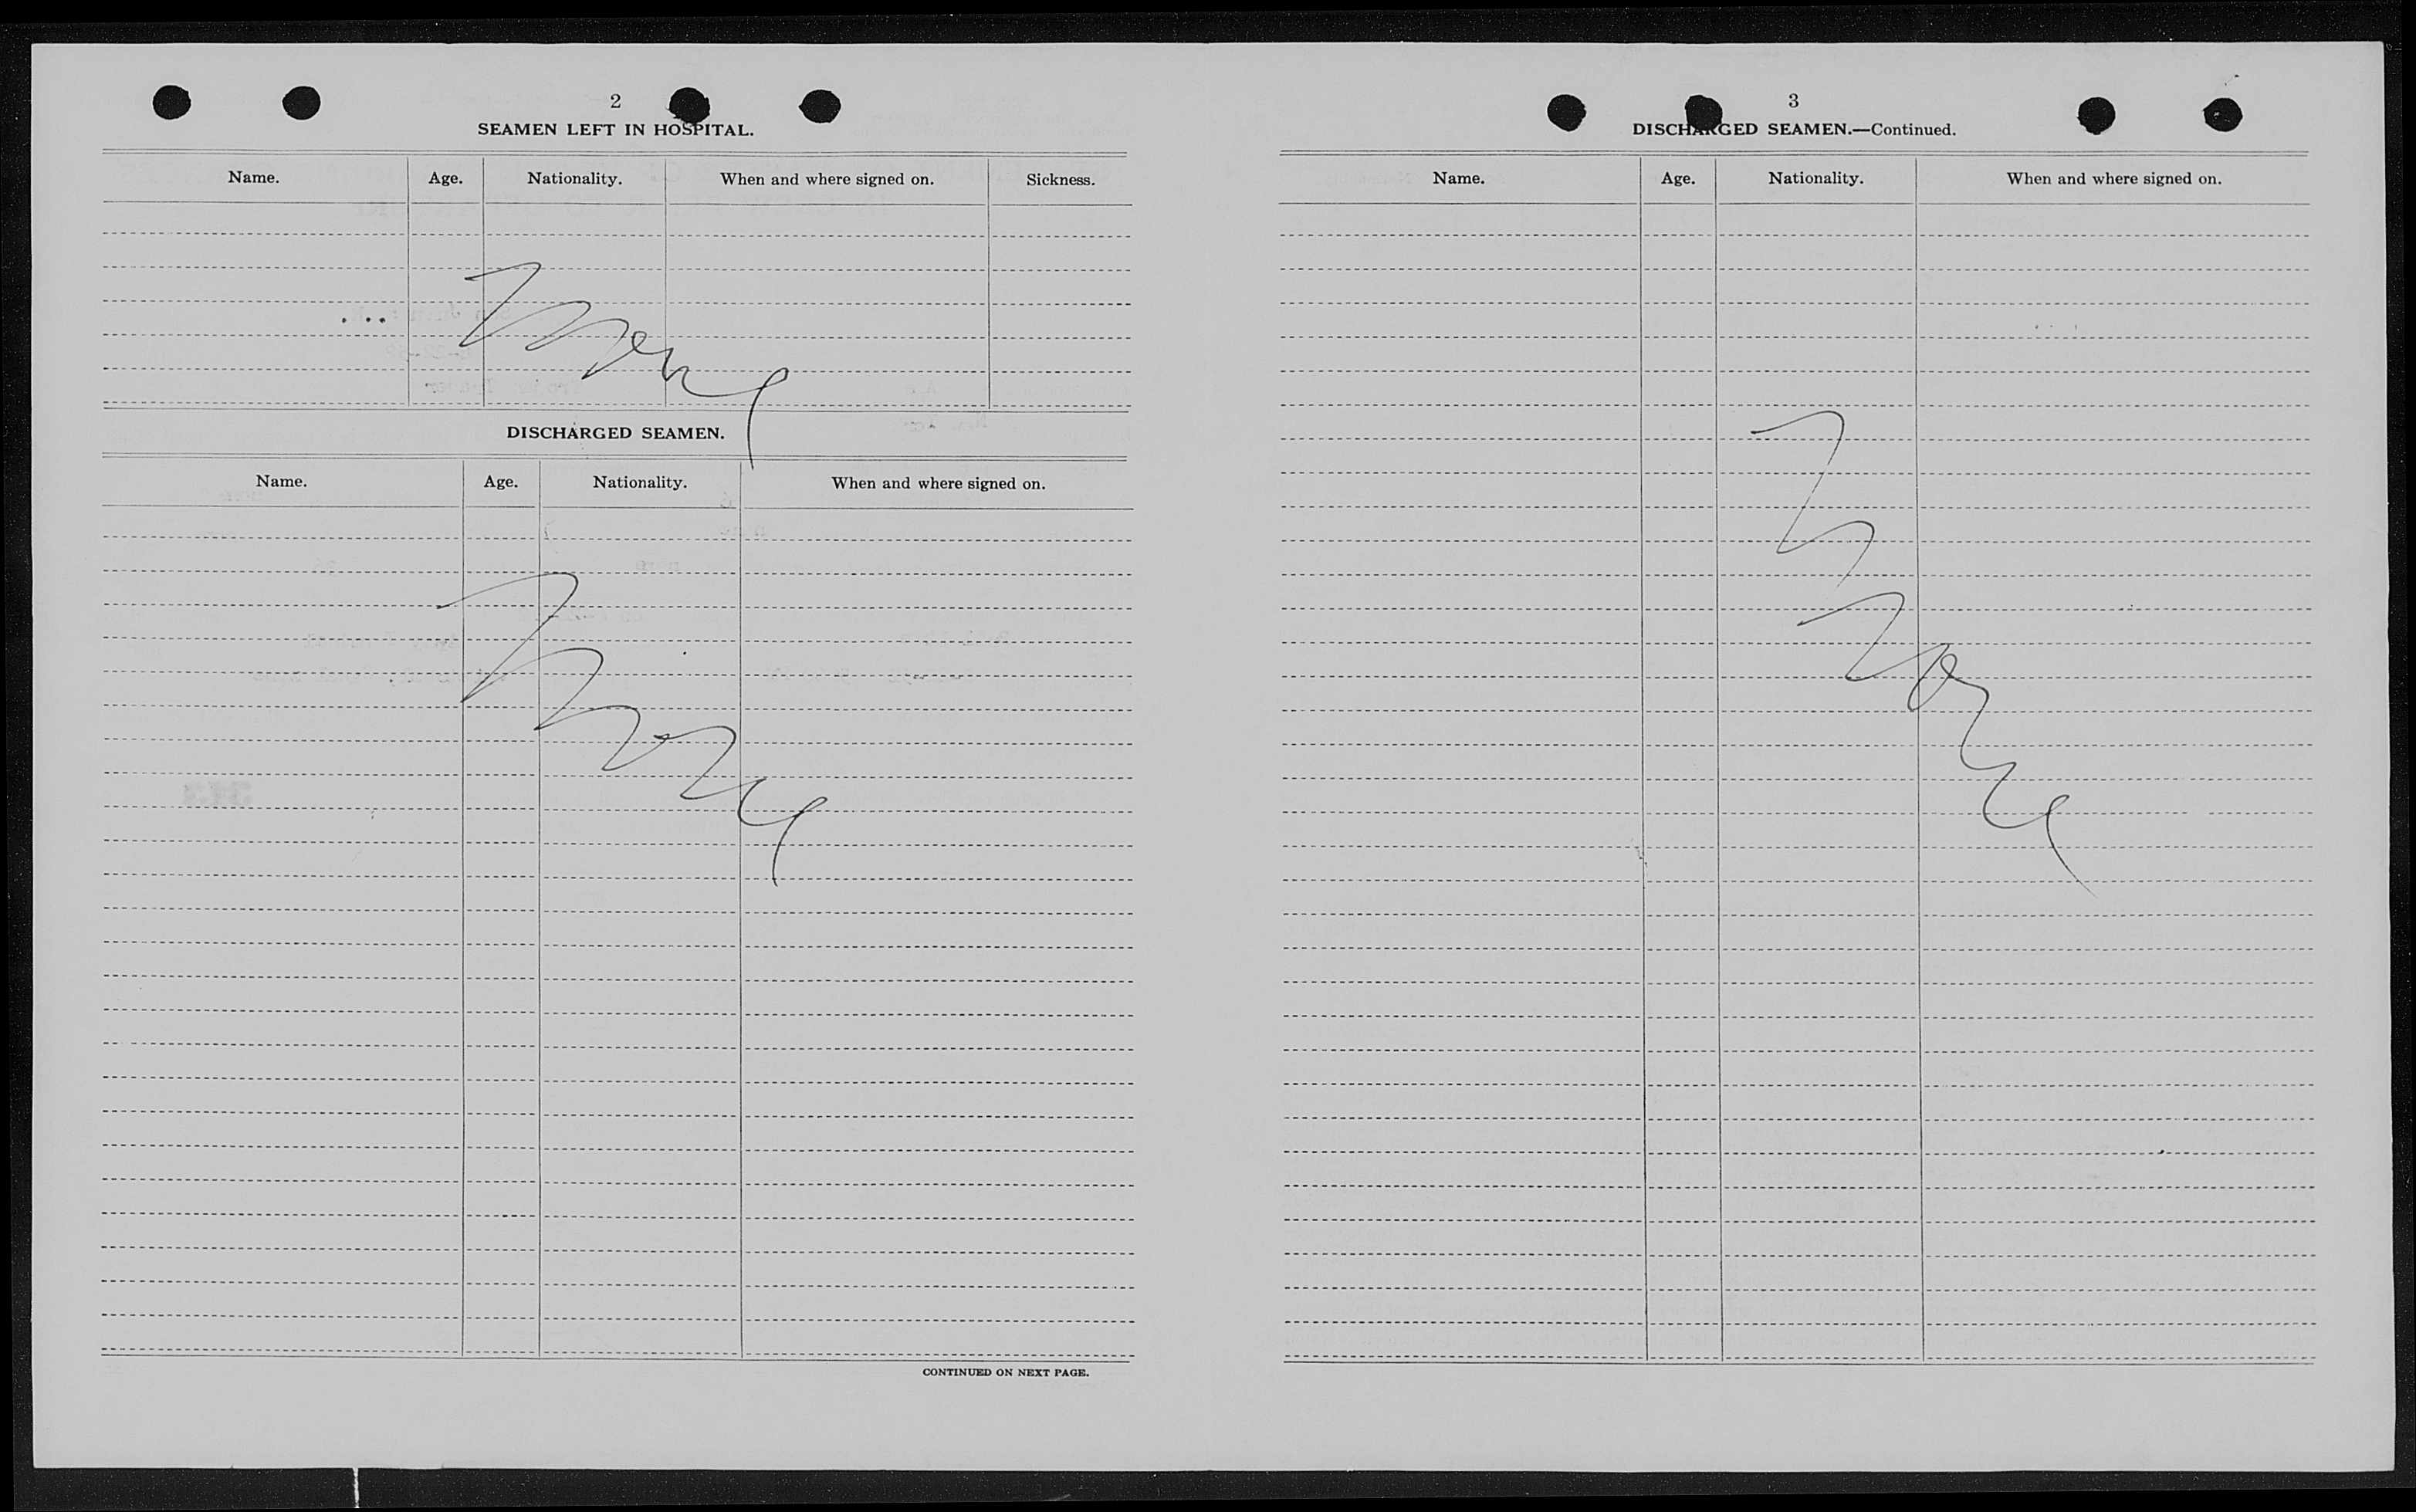 2
SEAMEN LEFT IN HOSPITAL.
Name. Age. Nationality. When and where signed on. Sickness.
None
DISCHARGED SEAMEN.
Name. Age. Nationality. When and where signed on.
None
CONTINUED ON NEXT PAGE.
3
DISCHARGED SEAMEN.—Continued.
Name. Age. Nationality. When and where signed on.
None